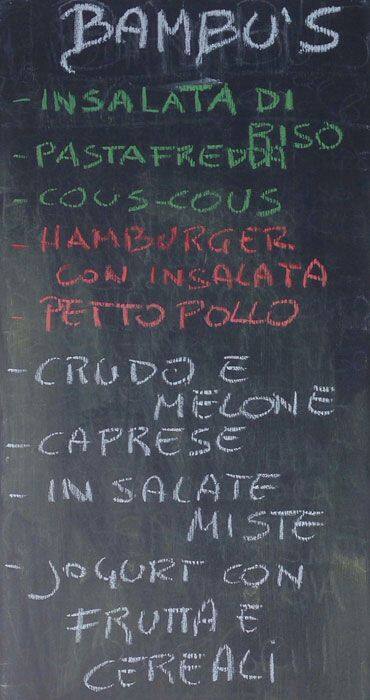 BAMBU'S
- INSALATA DI
RISO
- PASTA FREDDA
- COUS-COUS
- HAMBURGER
CON INSALATA
- PETTO POLLO
- CRUDO E
MELONE
- CAPRESE
- INSALATE
MISTE
- JOGURT CON
FRUTTA E
CEREALI